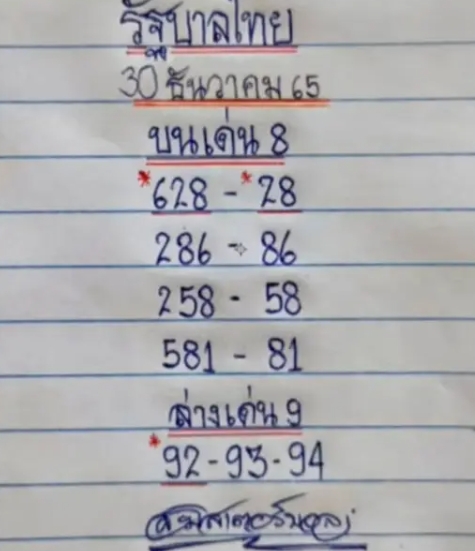 รัฐบาลไทย
30 ธันวาคม 65
บนเด่น 8
*628 - *28
286 - 86
258 - 58
581 - 81
ล่างเด่น 9
*92-93-94